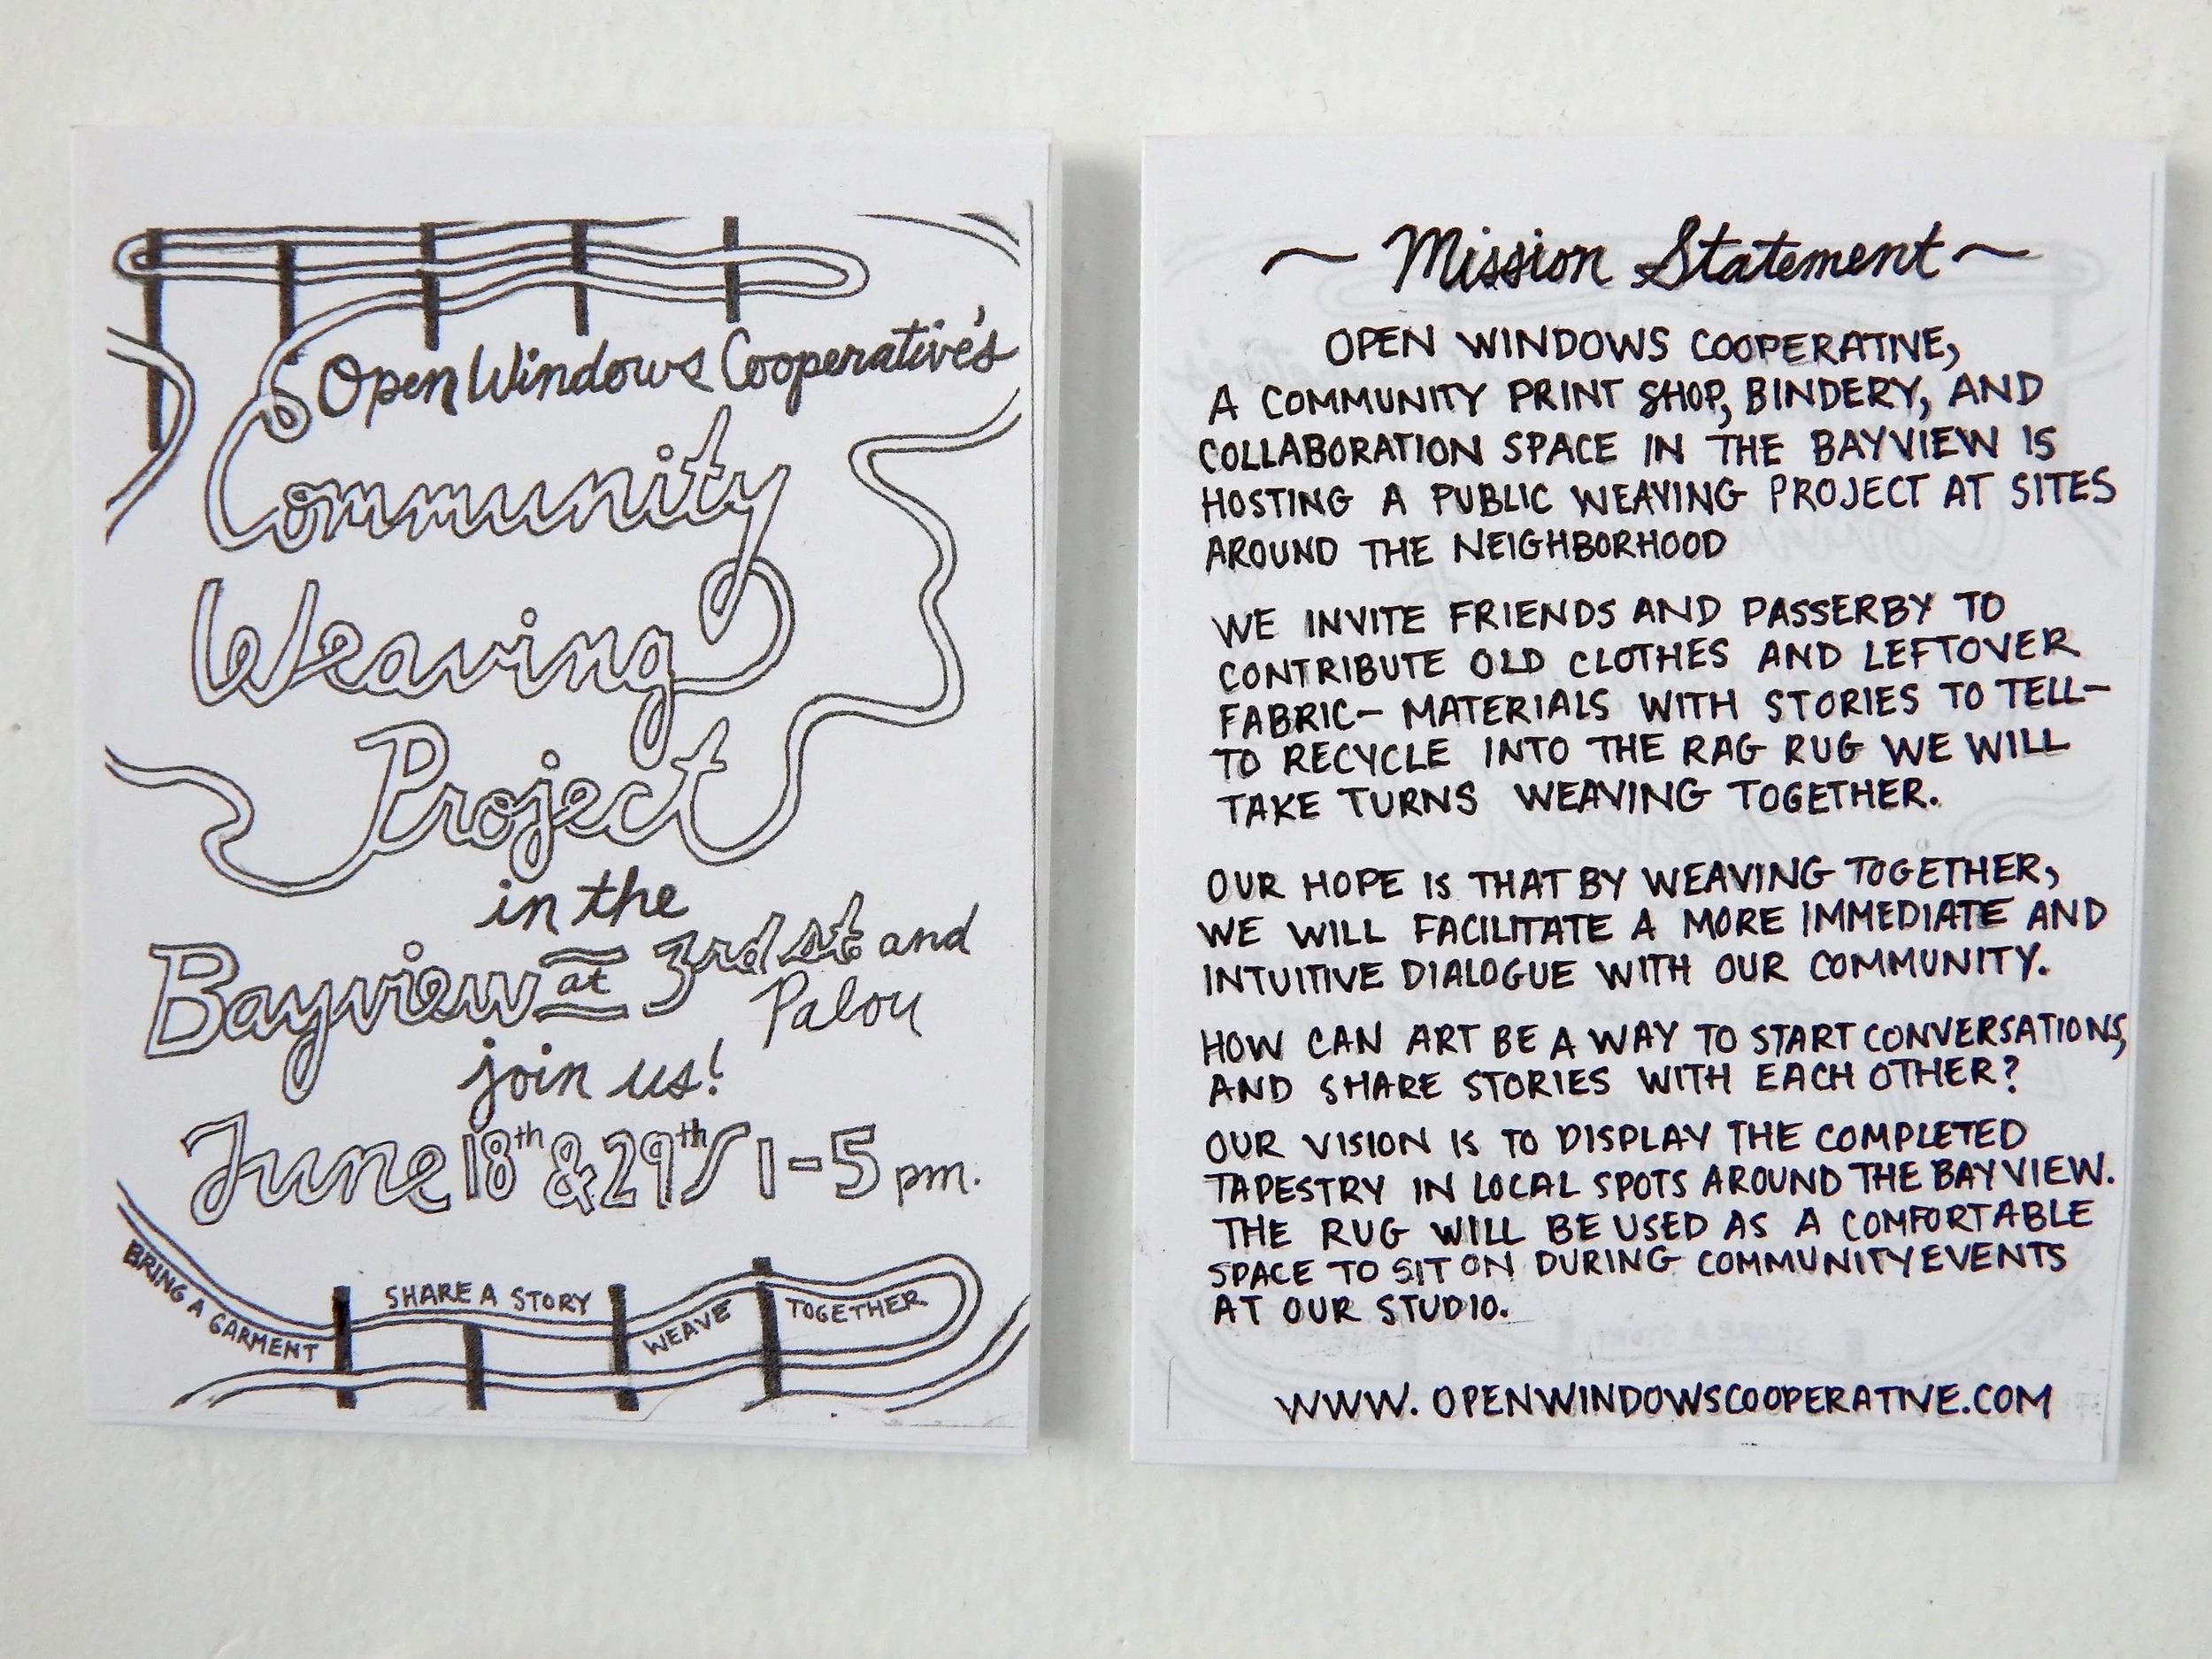 Open Windows Cooperative's
Community
Weaving
Project
in the
Bayview at 3rd st and
Palou
join us!
June 18th & 29th / 1-5 pm.
BRING A GARMENT
SHARE A STORY
WEAVE
TOGETHER
~ Mission Statement ~
OPEN WINDOWS COOPERATIVE,
A COMMUNITY PRINT SHOP, BINDERY, AND
COLLABORATION SPACE IN THE BAYVIEW IS
HOSTING A PUBLIC WEAVING PROJECT AT SITES
AROUND THE NEIGHBORHOOD
WE INVITE FRIENDS AND PASSERBY TO
CONTRIBUTE OLD CLOTHES AND LEFTOVER
FABRIC- MATERIALS WITH STORIES TO TELL-
TO RECYCLE INTO THE RAG RUG WE WILL
TAKE TURNS WEAVING TOGETHER.
OUR HOPE IS THAT BY WEAVING TOGETHER,
WE WILL FACILITATE A MORE IMMEDIATE AND
INTUITIVE DIALOGUE WITH OUR COMMUNITY.
HOW CAN ART BE A WAY TO START CONVERSATIONS,
AND SHARE STORIES WITH EACH OTHER?
OUR VISION IS TO DISPLAY THE COMPLETED
TAPESTRY IN LOCAL SPOTS AROUND THE BAYVIEW.
THE RUG WILL BE USED AS A COMFORTABLE
SPACE TO SIT ON DURING COMMUNITY EVENTS
AT OUR STUDIO.
WWW.OPENWINDOWSCOOPERATIVE.COM